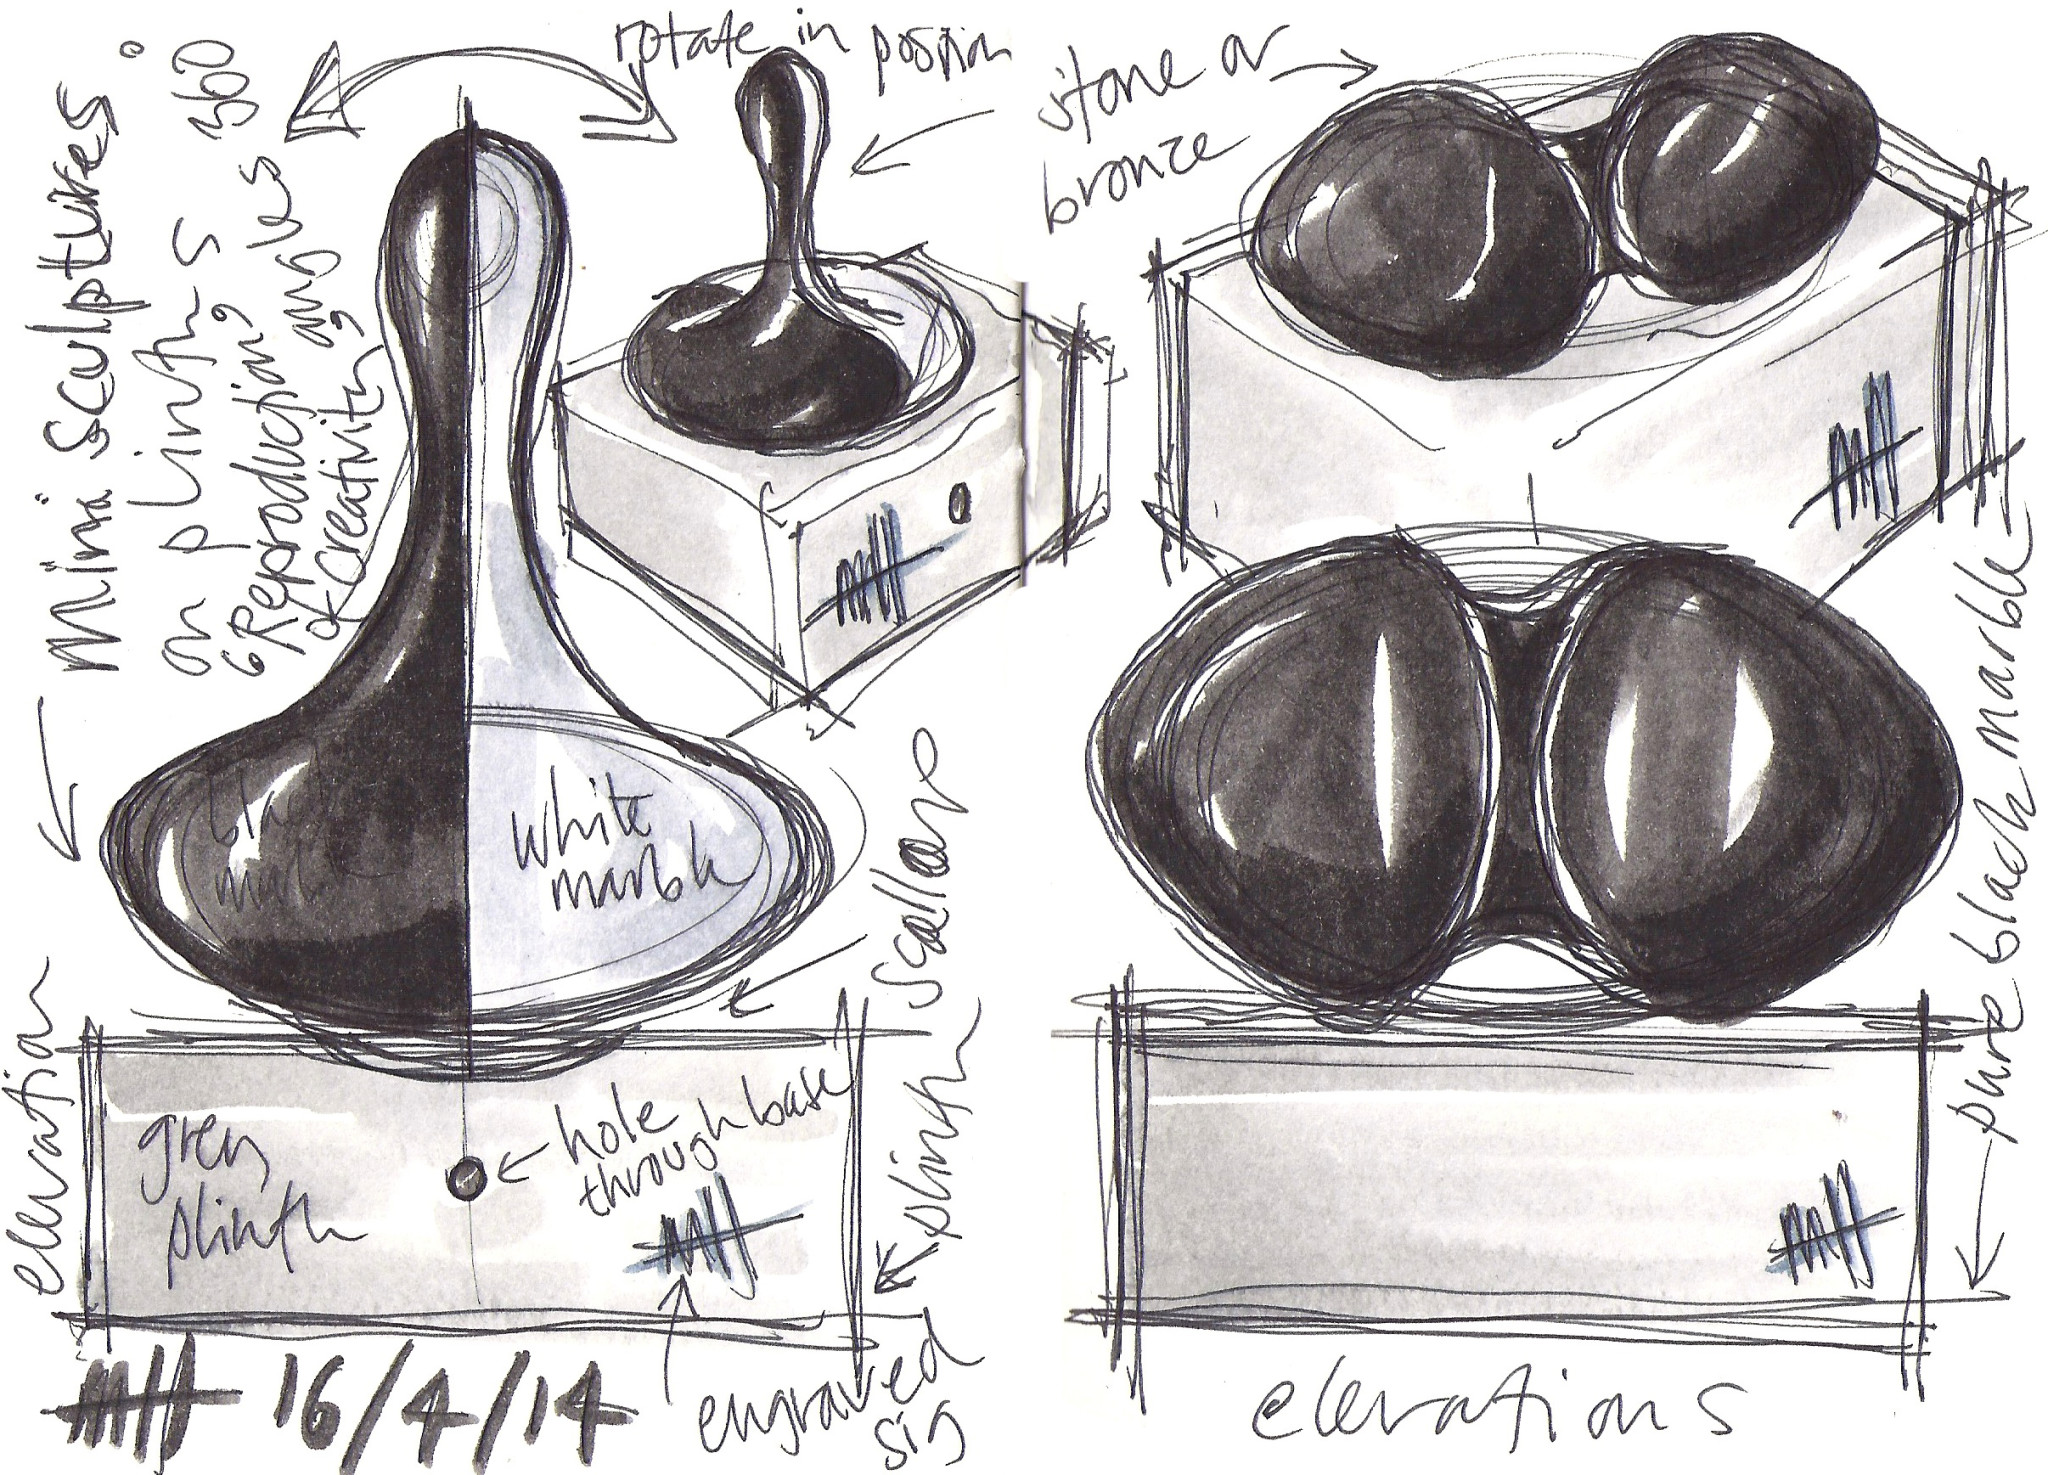 mini sculptures
on plinths 360
6 Reproductions angles
of creativity
rotate in position
stone or
bronze
black
white
marble
scallop
plinth
elevation
grey
plinth
hole
through base
engraved
sig
16/4/14
pure black marble
elevations